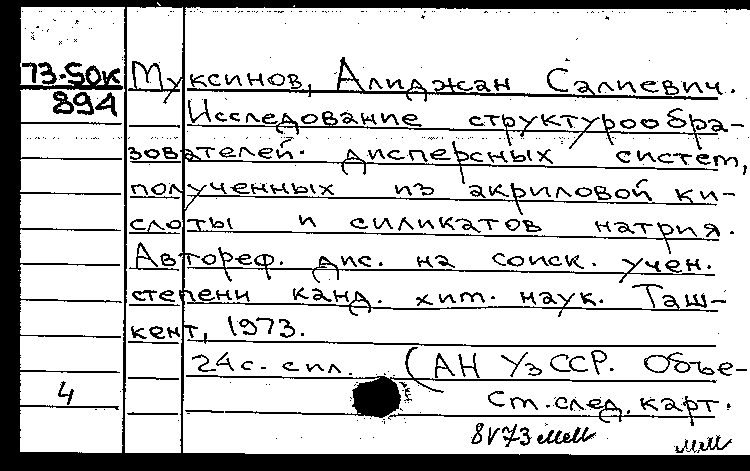 73-50к Муксинов, Алиджан Салиевич.
894 Исследование структурообра-
зователей дисперсных систем,
полученных из акриловой ки-
слоты и силикатов натрия.
Автореф. дис. на соиск. учен.
степени канд. хим. наук. Таш-
кент, 1973.
24 с. с ил. (АН УзССР. Объе-
4 См. след. карт.
8V73